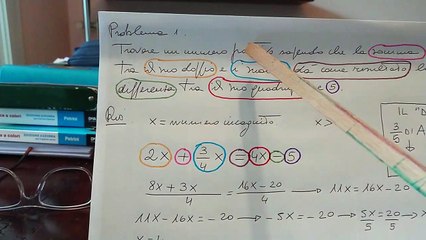 Problema 1.
Trovare un numero sapendo che la somma
tra il suo doppio e i suoi da come risultato la
differenza tra il suo quadruplo e 5
x = numero incognito x>
IL "D
3/5 DI A
2x + 3/4 x = 4x - 5
8x + 3x / 4 = 16x - 20 / 4 → 11x = 16x - 20
11x - 16x = -20 → -5x = -20 → 5x/5 = 20/5 → x